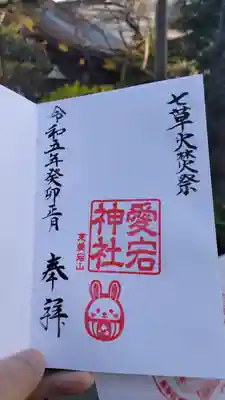 七草火焚祭
愛宕神社
東愛宕山
奉拝
令和五年癸卯正月